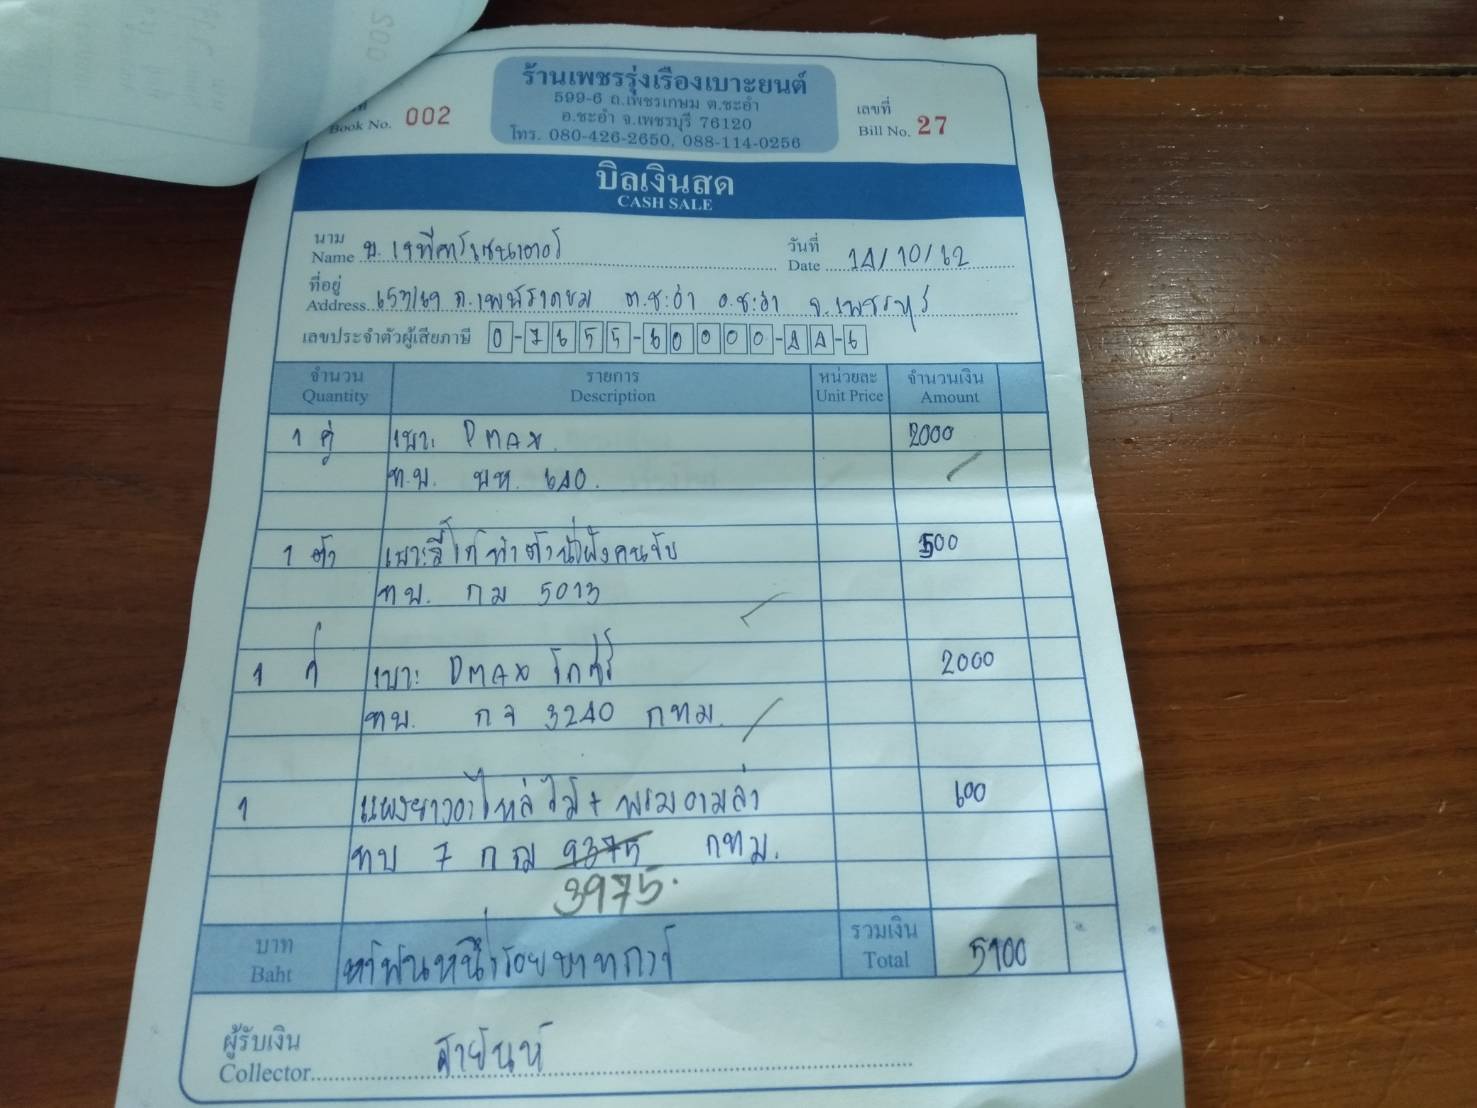 ร้านเพชรรุ่งเรืองเบาะยนต์
599-6 ถ.เพชรเกษม ต.ชะอำ
อ.ชะอำ จ.เพชรบุรี 76120
โทร. 080-426-2650, 088-114-0256
Book No. 002
เลขที่
Bill No. 27
บิลเงินสด
CASH SALE
นาม
Name
วันที่
Date 14/10/62
ที่อยู่
Address ต.ชะอำ อ.ชะอำ จ.เพชรบุรี
เลขประจำตัวผู้เสียภาษี 0-7655-60000-44-6
จำนวน รายการ หน่วยละ จำนวนเงิน
Quantity Description Unit Price Amount
1 คู่ เบาะ DMAX 2000
ทบ. บห. 640.
1 ตัว 500
ทบ. กม 5013
1 คู่ เบาะ DMAX 2000
ทบ. กจ 3240 กทม.
1 600
ทบ 7 กฌ 9375 กทม.
3975.
บาท ห้าพันหนึ่งร้อยบาทถ้วน รวมเงิน 5100
Baht Total
ผู้รับเงิน สายันห์
Collector